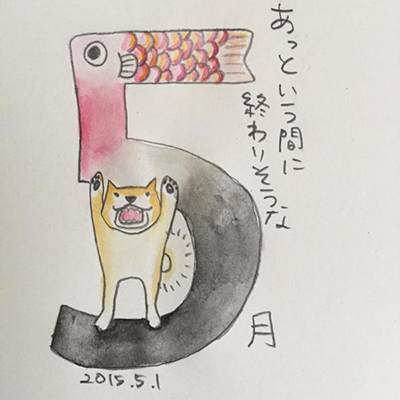 あっという間に
終わりそうな
5月
2015.5.1